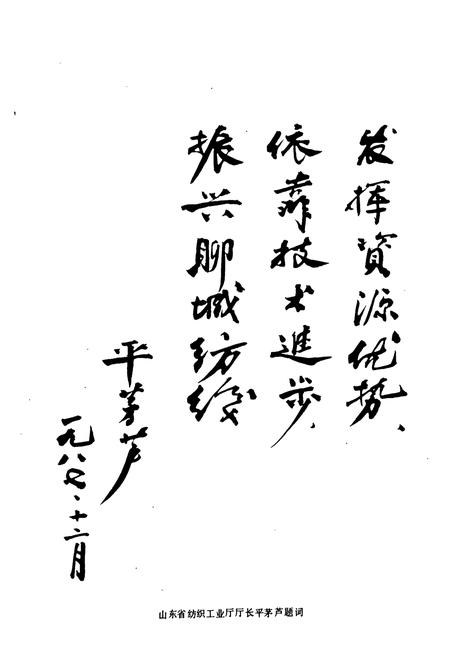 发挥資源优势、
依靠技术進步、
振兴聊城纺织
平茅芦
一九八七、十二月
山东省纺织工业厅厅长平茅芦题词